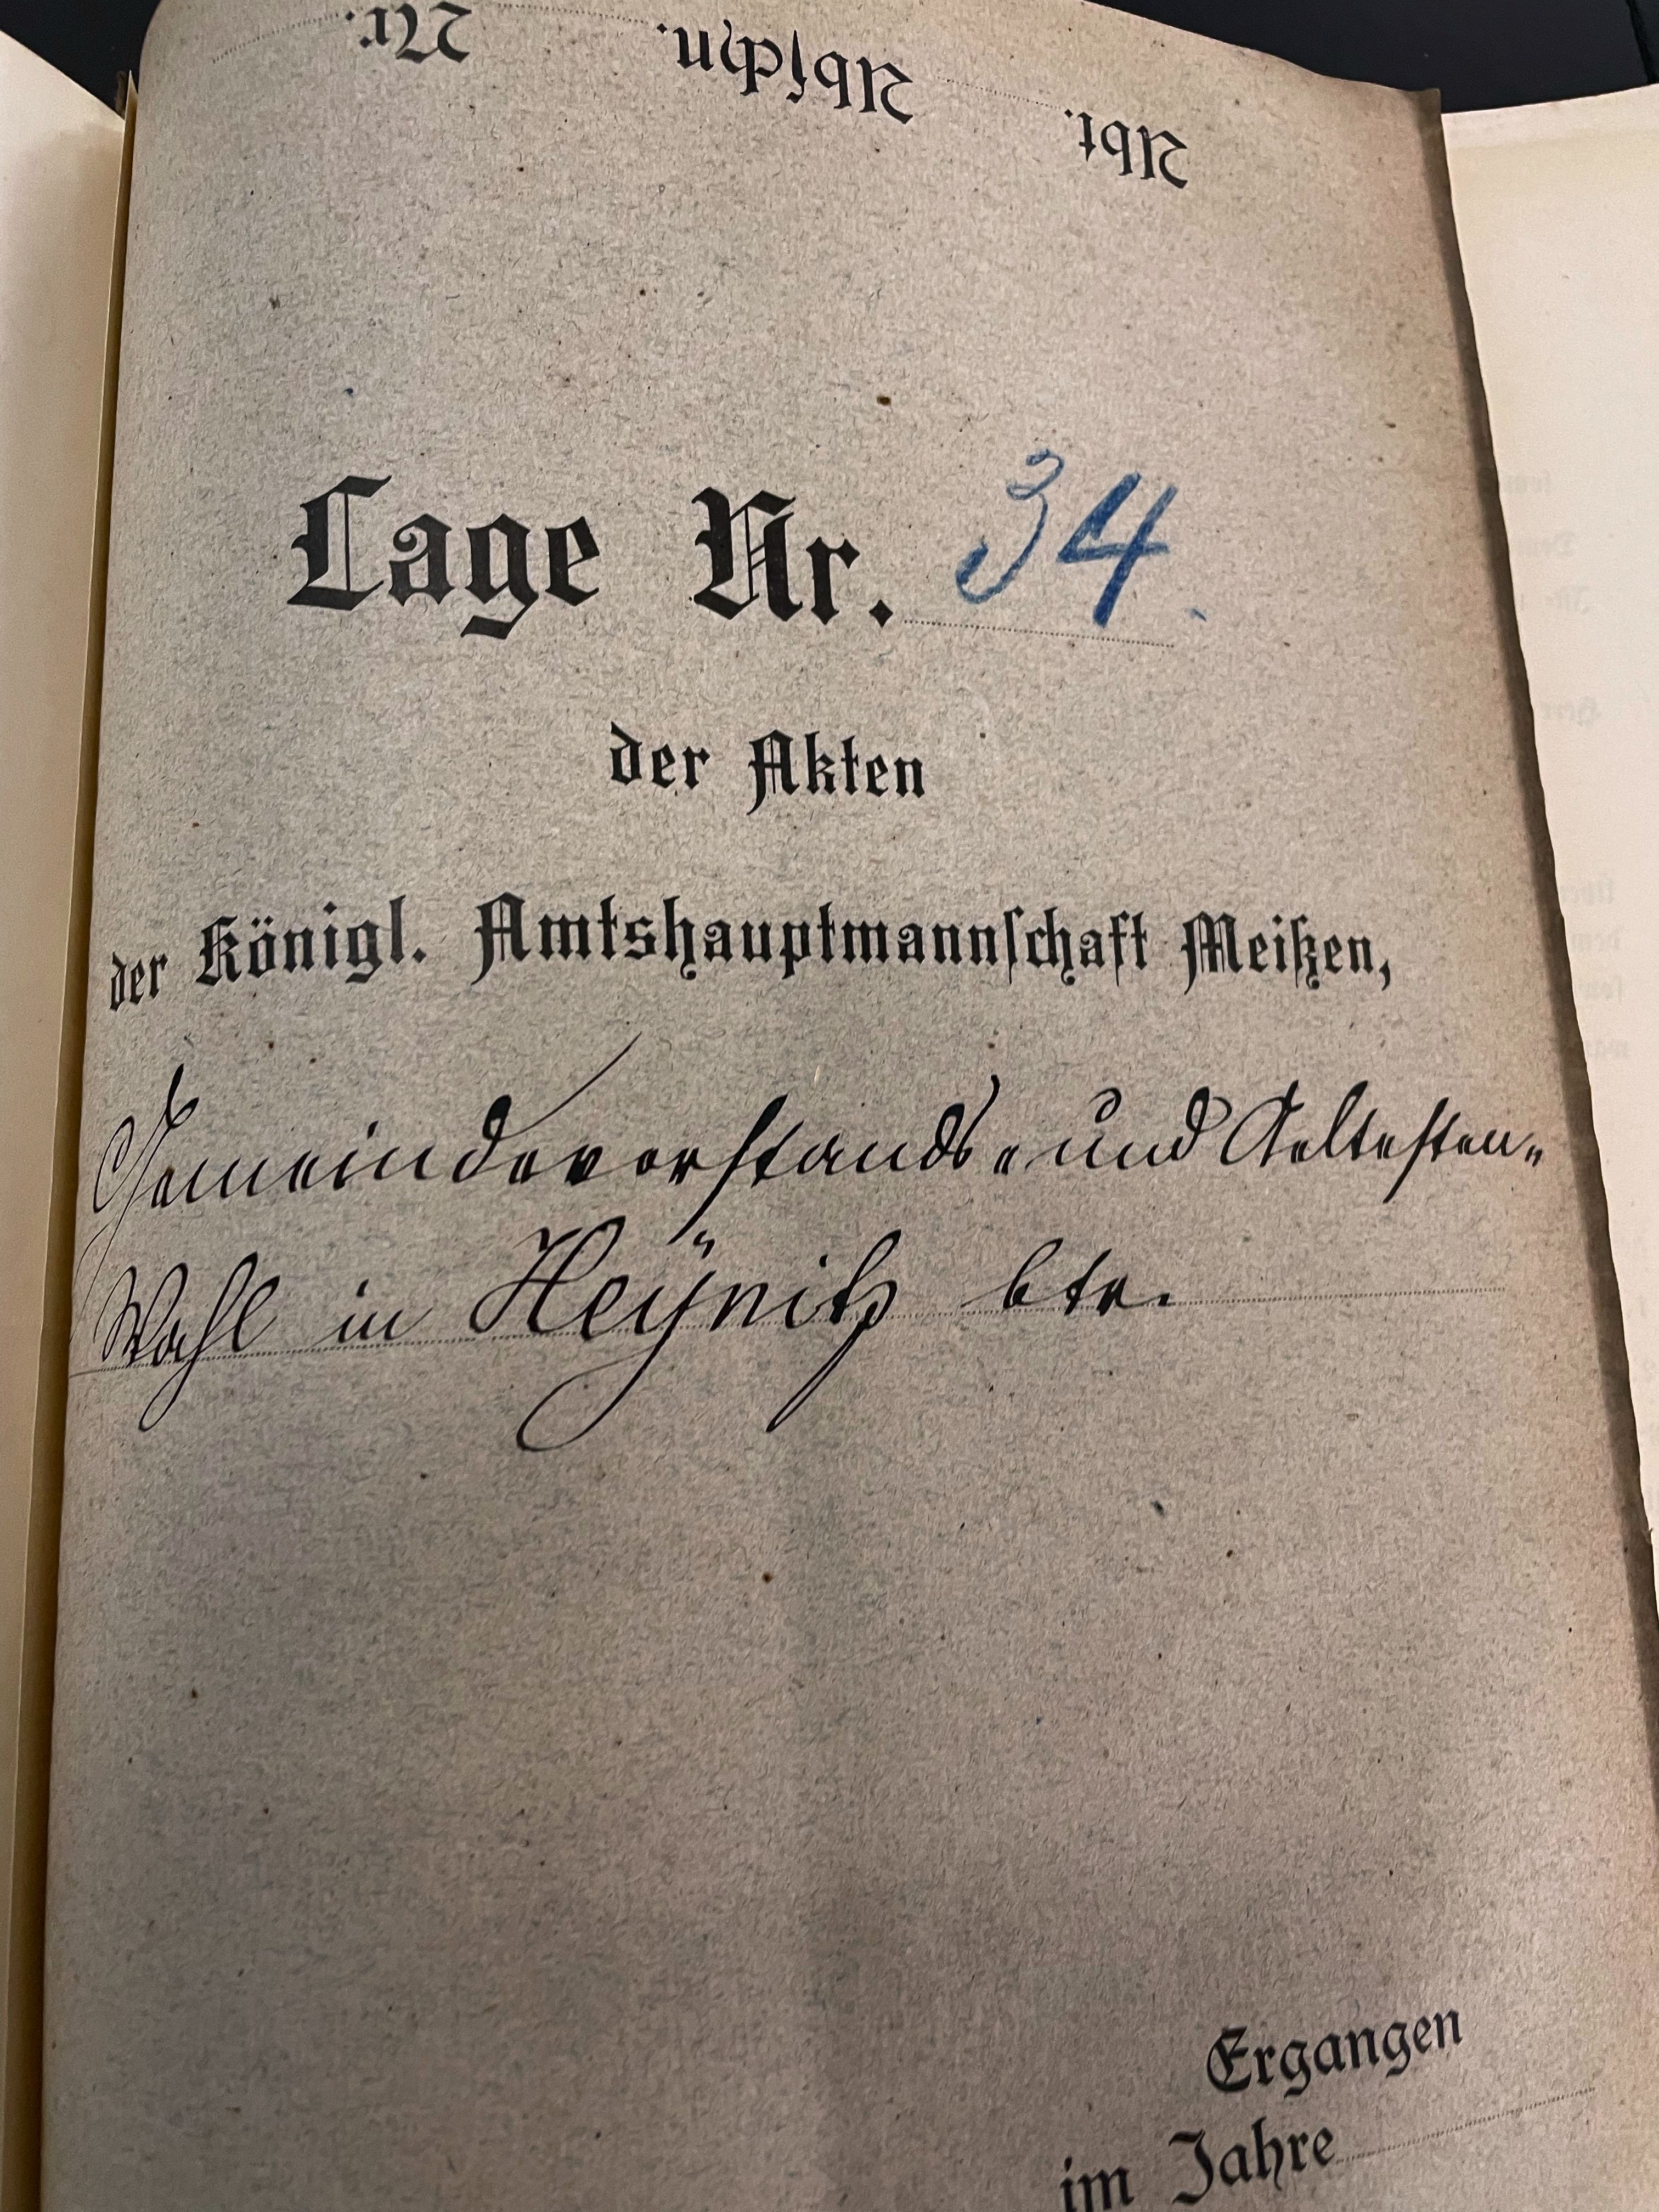 Abt. Abschn. Nr.
Lage Nr. 34.
der Akten
der Königl. Amtshauptmannschaft Meißen,
Gemeindevorstands- und Aeltesten-
Wahl in Heÿnitz btr.
Ergangen
im Jahre